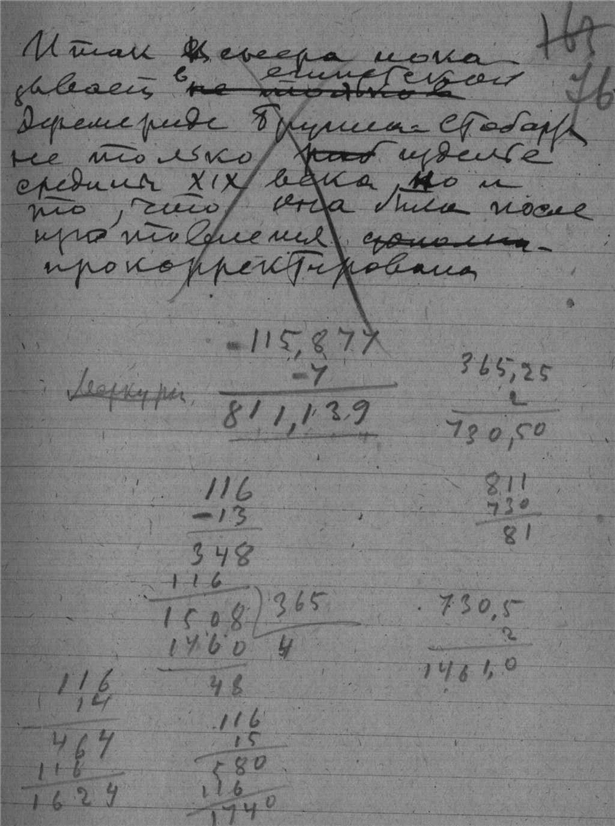 163
76
Итак Венера пока-
зывает в египетской
не только в
эфемериде Бругша-Стобарта
не только изделие
средины XIX века, но и
то, что она была после
изготовления
прокорректирована
-115,877
-7
811,139
Меркурий
365,25
2
730,50
116
-13
348
116
1508 365
1460 4
48
811
730
81
730,5
2
1461,0
116
14
464
116
1624
116
15
580
116
1740